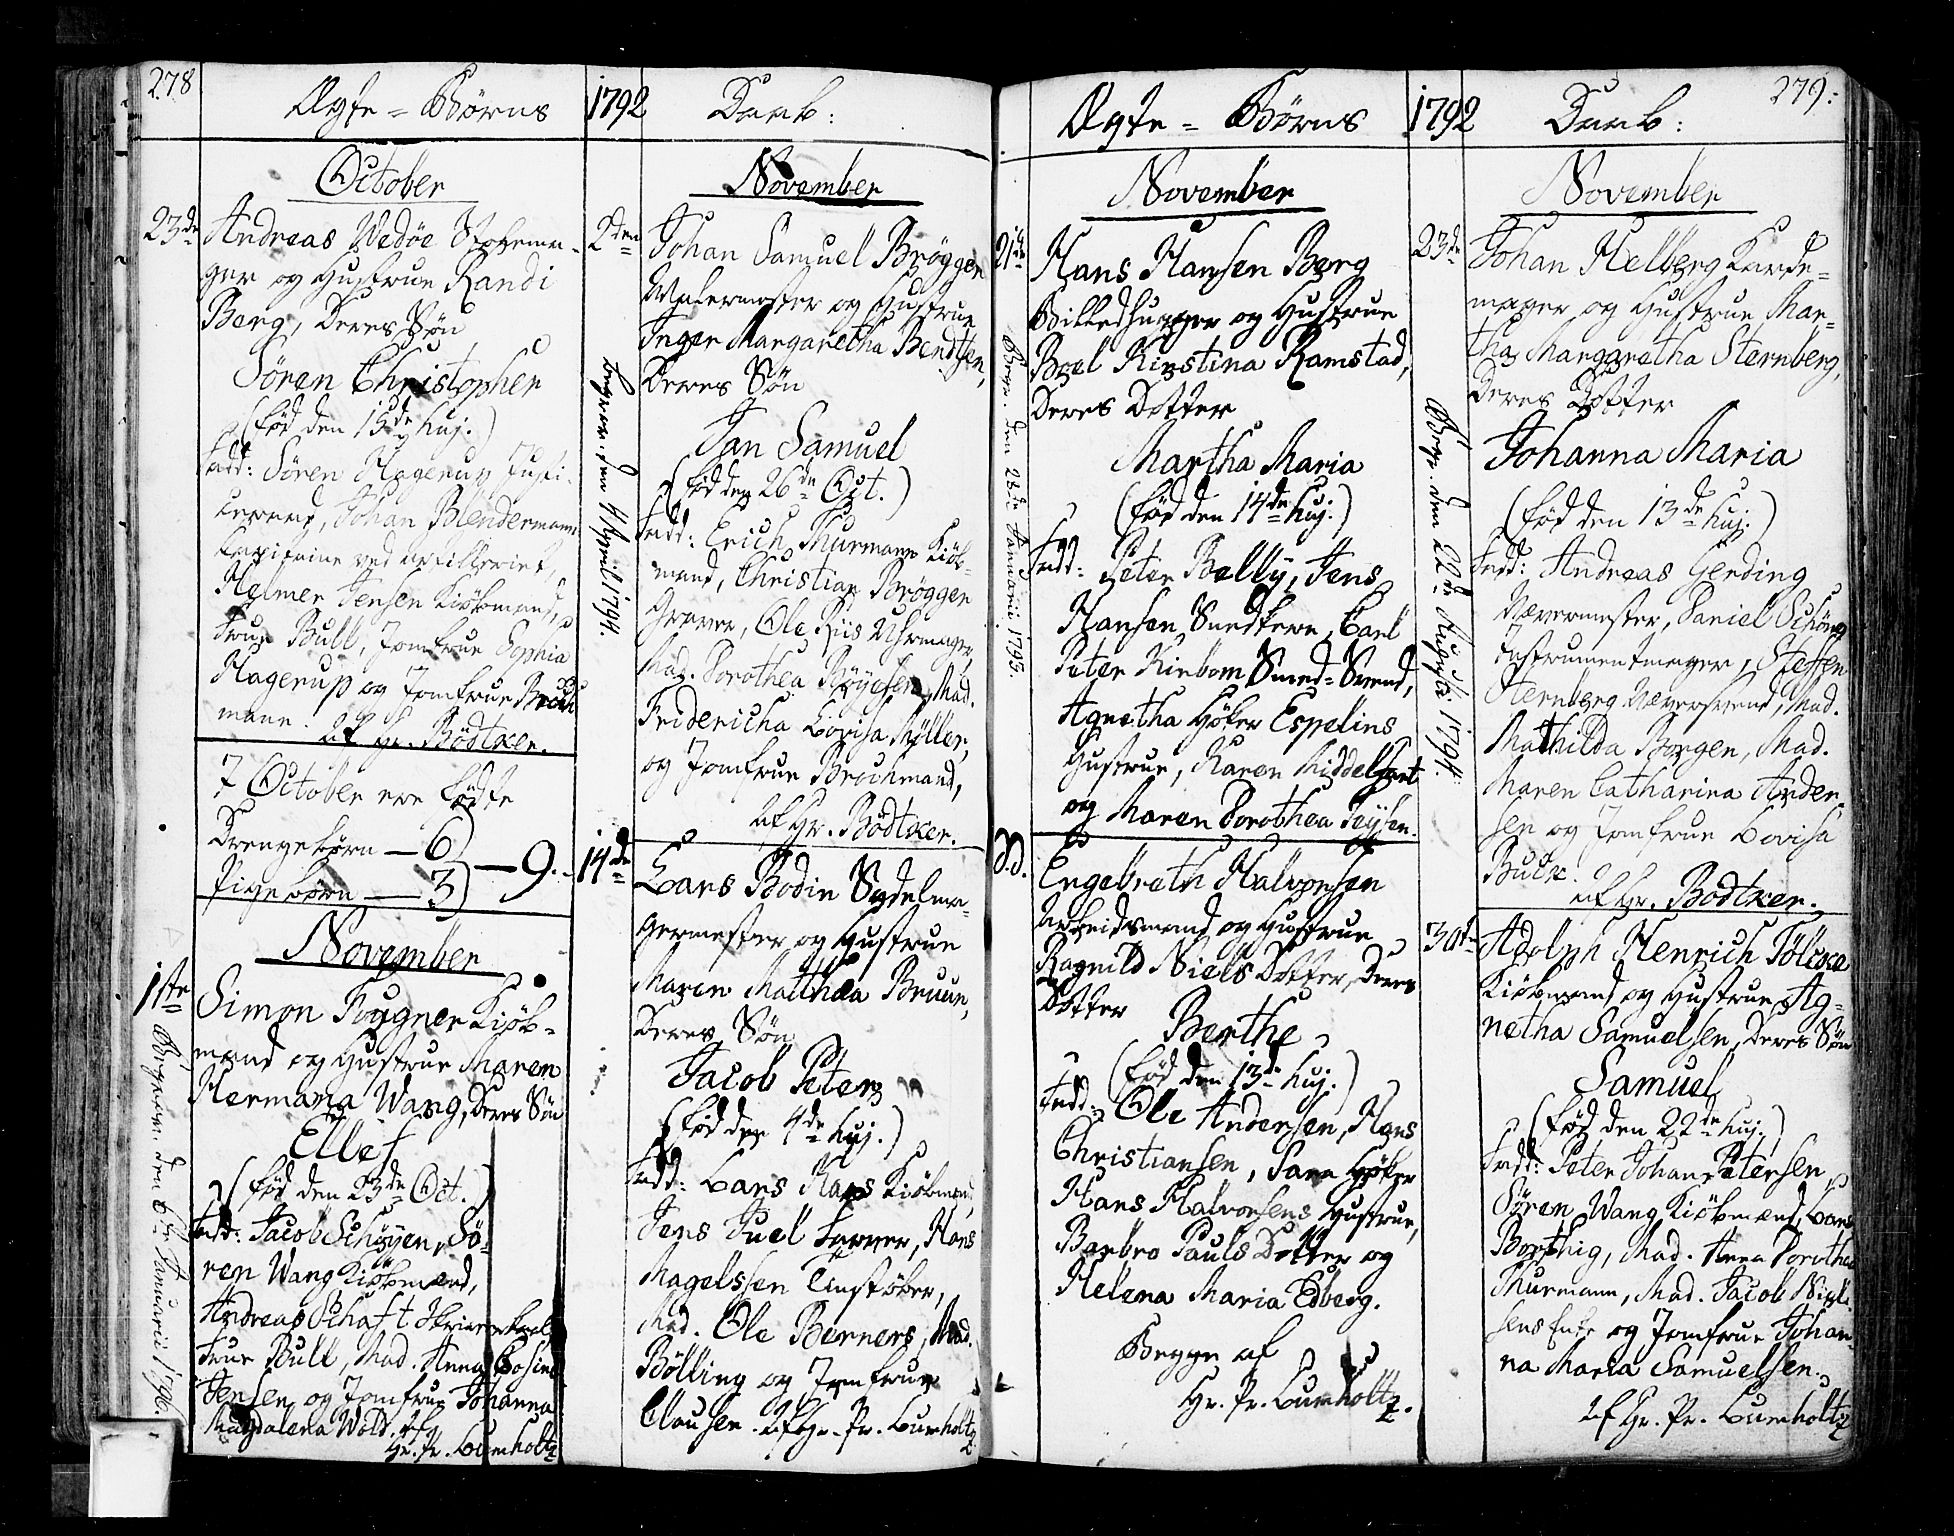 278
Ægte = Børns 1792 Daab:
October
23de Andreas Wedøe
ger og Hustrue Randi
Berg, Deres Søn
Søren Christopher
(Fød den 15de huj.)
Fadd: Søren Hagerup Justi-
Johan Blendermann
Capitaine ved artilleriet,
Helmer Jensen Kiøbmand,
Frue Bull, Jomfrue Sophia
Hagerup og Jomfrue
mann. Af Hr. Bødtker.
I October ere fødte
Drengebørn — 6
Pigebørn — 3) — 9.
November
1ste Simon Fougner Kiøb-
mand og Hustrue Maren
Hermana Wang, Deres Søn
Ellef
(Fød den 23de Oct.)
Fadd: Jacob Schøyen, Sø-
ren Wang Kiøbmænd,
Andreas Schaft
Frue Bull, Mad. Anna
Jensen og Jomfrue Johanna
Magdalena Wold. Af
Hr. Pr. Lumholtz
Begrav. den 6te Januarii 1796.
November
2den Johan Samuel Brøgger
Malermester og Hustrue
Inger Margaretha Bendtsen,
Deres Søn
Jan Samuel
(Fød den 26de Oct.)
Fadd: Erich Thurmann Kiøb-
mand, Christian Brøgger
Graver, Ole Riis Uhrmager,
Mad. Dorothea Bøyesen, Mad.
Fridericha Lovisa Møller,
og Jomfrue Brochmand,
Af Hr. Bødtker.
Begrav. den 4 April 1794.
14de Lars Bodin Sadelma-
germester og Hustrue
Maren Matthea Bruun,
Deres Søn
Jacob Peter
(Fød den 4de huj.)
Fadd: Lars Maas Kiøbmand,
Jens Juel Farver, Hans
Magelssen Tinstøber,
Mad. Ole Berners, Mad.
Bølling og Jomfrue
Clausen. Af Hr. Pr. Lumholtz
279.
Ægte = Børns 1792 Daab:
November
21de Hans Hansen Berg
Billedhugger og Hustrue
Boel Kirstina Ramstad,
Deres Dotter
Martha Maria
(Fød den 14de huj.)
Fadd: Peter Belly, Jens
Hansen Snedkere, Carl
Peter Kirbom Smed-Svend,
Agnetha Høker Espelins
Hustrue, Karen Middelfart
og Maren Dorothea Teysen.
Begr. den 28de Januarii 1793.
Dd. Engebreth Halvorsen
Arbeidsmand og Hustrue
Ragnild Niels Dotter, Deres
Dotter
Berthe
(Fød den 13de huj.)
Fadd: Ole Andersen, Hans
Christiansen, Sara Høker
Hans Halvorsens Hustrue,
Barbro Pauls Dotter og
Helena Maria Edberg.
Begge af
Hr. Pr. Lumholtz.
November
23de Johan Helberg Karde-
mager og Hustrue Mar-
tha Margaretha Sternberg,
Deres Dotter
Johanna Maria
(Fød den 13de huj.)
Fadd: Andreas Gerding
Vævermester, Daniel Schøng
Instrumentmager, Steffen
Sternberg Væversvend, Mad.
Mathilda Borgen, Mad.
Maren Catharina Ander-
sen og Jomfrue Lovisa
Buck.
Af Hr. Bødtker.
Begr. den 22de Augusti 1794.
30te Adolph Henrich
Kiøbmand og Hustrue Ag-
netha Samuelsen, Deres Søn
Samuel
(Fød den 22de huj.)
Fadd: Peter Johan Petersen,
Søren Wang Kiøbmænd, Lars
Borthig, Mad. Anna Dorothea
Thurmann, Mad. Jacob Niel-
sens Enke og Jomfrue Johan-
na Maria Samuelsen.
Af Hr. Pr. Lumholtz